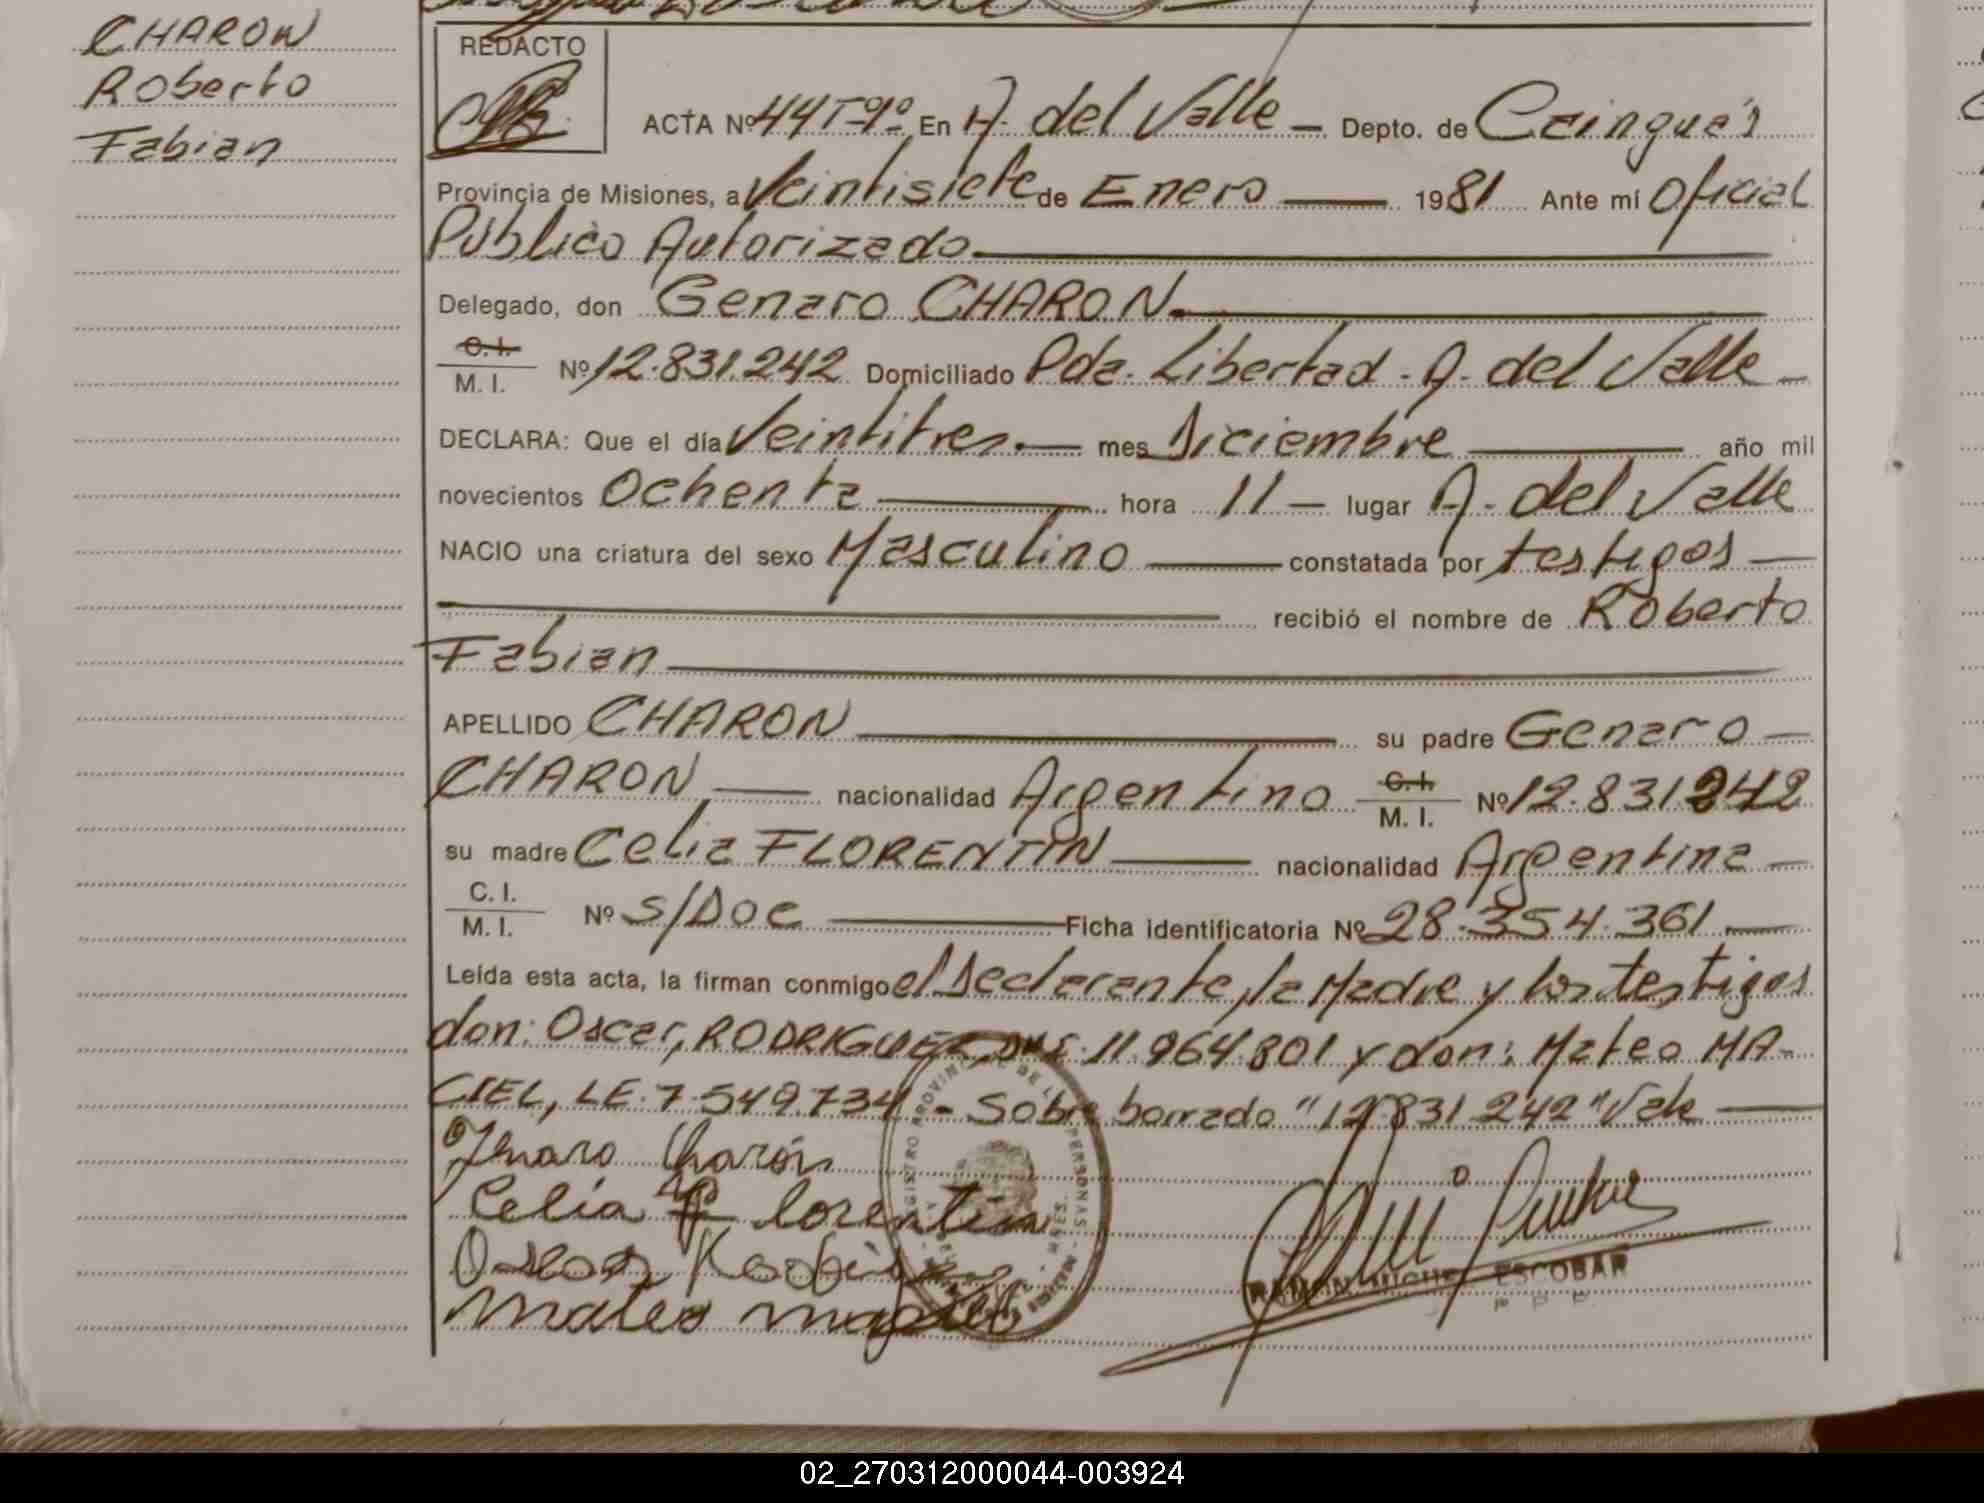 CHARON
Roberto
Fabian
REDACTO
ACTA Nº 44 Tº 1º En A. del Valle — Depto. de Cainguá's
Provincia de Misiones, a Veintisiete de Enero — 1981 Ante mí Oficial
Público Autorizado
Delegado, don Genaro CHARON
C. I.
M. I. Nº 12.831.242 Domiciliado Pda. Libertad - A. del Valle —
DECLARA: Que el día Veintitres.— mes Diciembre — año mil
novecientos Ochenta — hora 11 — lugar A. del Valle
NACIO una criatura del sexo Masculino — constatada por testigos —
recibió el nombre de Roberto
Fabian
APELLIDO CHARON — su padre Genaro —
CHARON — nacionalidad Argentino C. I. M. I. Nº 12.831242
su madre Celia FLORENTIN — nacionalidad Argentina —
C. I.
M. I. Nº S/Doc — Ficha identificatoria Nº 28.354.361 —
Leída esta acta, la firman conmigo el Declarante, la Madre y los testigos
don: Oscar, RODRIGUEZ, DNI. 11.964.801 y don: Mateo MA-
CIEL, LE. 7.549.734 - Sobre borrado "12.831.242" Vale —
Jenaro Charón
Celia Florentin
Oscar
Mateo
REGISTRO PROVINCIAL DE LAS PERSONAS
RAMON MIGUEL ESCOBAR
02_270312000044-003924